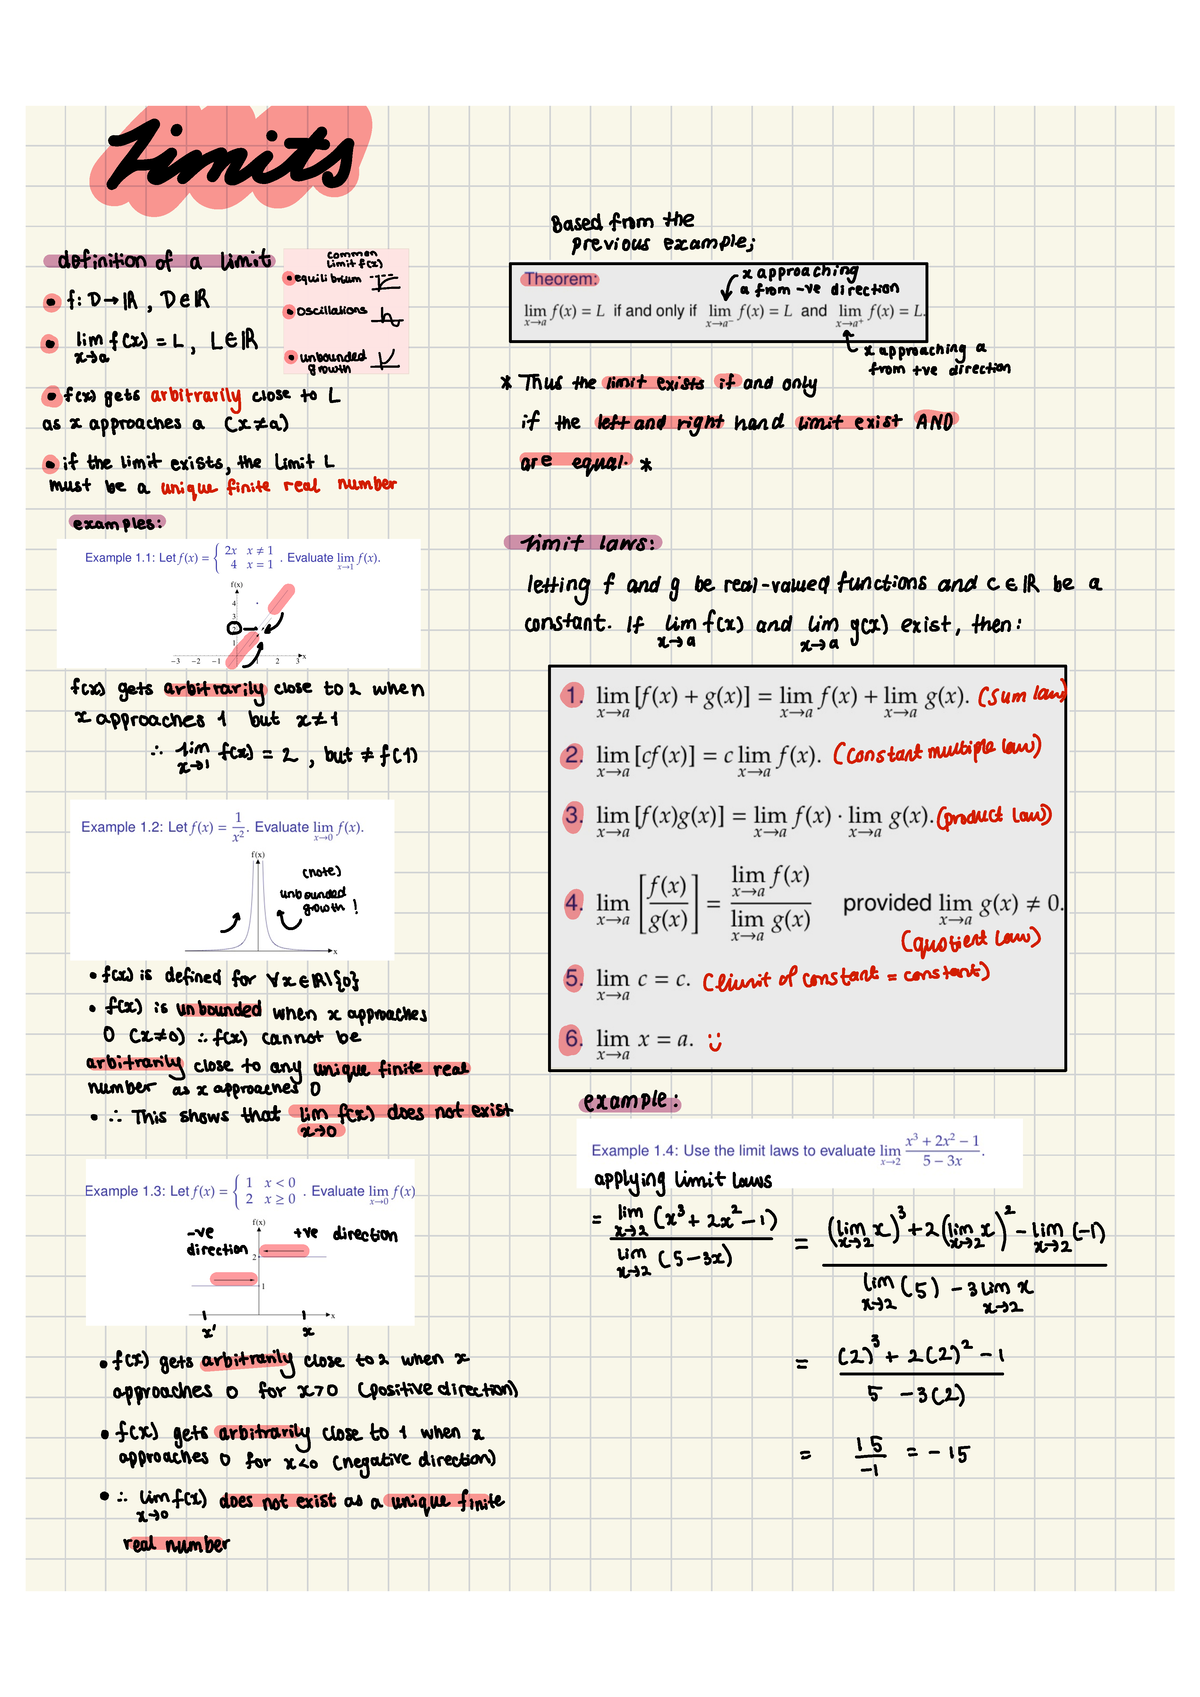 Limits
definition of a limit
common
limit f(x)
• equilibrium
• oscillations
• unbounded
growth
• f: D → ℝ , D ∈ ℝ
• lim f(x) = L , L ∈ ℝ
x→a
• f(x) gets arbitrarily close to L
as x approaches a (x≠a)
• if the limit exists, the limit L
must be a unique finite real number
examples:
Example 1.1: Let f(x) = { 2x x ≠ 1
4 x = 1 . Evaluate lim f(x).
x→1
f(x)
4
3
1
-3 -2 -1 1 2 3 x
f(x) gets arbitrarily close to 2 when
x approaches 1 but x≠1
∴ lim f(x) = 2 , but ≠ f(1)
x→1
Example 1.2: Let f(x) = 1/x². Evaluate lim f(x).
x→0
f(x)
(note)
unbounded
growth !
x
• f(x) is defined for ∀x∈ℝ\{0}
• f(x) is unbounded when x approaches
0 (x≠0) ∴ f(x) cannot be
arbitrarily close to any unique finite real
number as x approaches 0
• ∴ This shows that lim f(x) does not exist
x→0
Example 1.3: Let f(x) = { 1 x < 0
2 x ≥ 0 . Evaluate lim f(x)
x→0
f(x)
-ve direction
+ve direction
2
1
x
x' x
• f(x) gets arbitrarily close to 2 when x
approaches 0 for x>0 (positive direction)
• f(x) gets arbitrarily close to 1 when x
approaches 0 for x<0 (negative direction)
• ∴ lim f(x) does not exist as a unique finite
x→0
real number
Based from the
previous example;
Theorem:
x approaching
a from -ve direction
lim f(x) = L if and only if lim f(x) = L and lim f(x) = L.
x→a x→a⁻ x→a⁺
x approaching a
from +ve direction
* Thus the limit exists if and only
if the left and right hand limit exist AND
are equal. *
limit laws:
letting f and g be real-valued functions and c ∈ ℝ be a
constant. If lim f(x) and lim g(x) exist, then:
x→a x→a
1. lim [f(x) + g(x)] = lim f(x) + lim g(x). (sum law)
x→a x→a x→a
2. lim [cf(x)] = c lim f(x). (constant multiple law)
x→a x→a
3. lim [f(x)g(x)] = lim f(x) · lim g(x). (product law)
x→a x→a x→a
4. lim [f(x)/g(x)] = lim f(x) / lim g(x) provided lim g(x) ≠ 0.
x→a x→a x→a x→a
(quotient law)
5. lim c = c. (limit of constant = constant)
x→a
6. lim x = a. :)
x→a
example:
Example 1.4: Use the limit laws to evaluate lim (x³ + 2x² − 1)/(5 − 3x).
x→2
applying limit laws
= lim (x³ + 2x² − 1) / lim (5 − 3x) = ((lim x)³ + 2(lim x)² − lim (−1)) / (lim (5) − 3 lim x)
x→2 x→2 x→2 x→2 x→2 x→2 x→2
= ((2)³ + 2(2)² − 1) / (5 − 3(2))
= 15/−1 = −15